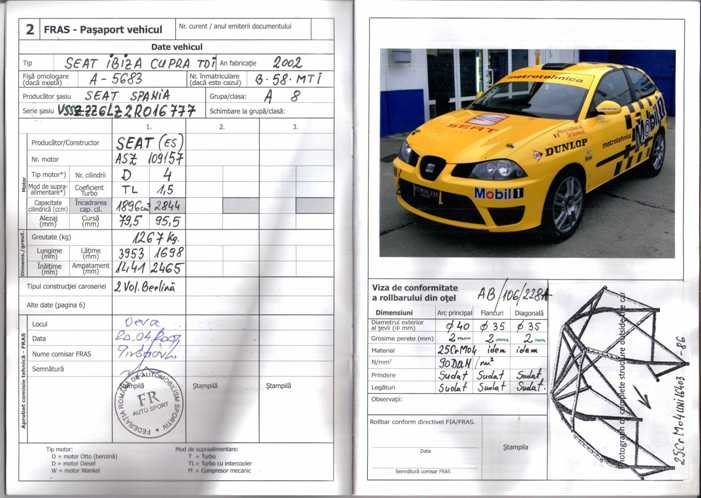 2 FRAS - Paşaport vehicul
Nr. curent / anul emiterii documentului
Date vehicul
Tip SEAT IBIZA CUPRA TDI An fabricaţie 2002
Fişă omologare (dacă există) A - 5683 Nr. înmatriculare (dacă este cazul) B·58·MTI
Producător şasiu SEAT SPANIA Grupa/clasa: A 8
Serie şasiu VSSZZZ6LZ2R016777 Schimbare la grupă/clasă:
1. 2. 3.
Motor
Producător/Constructor SEAT (ES)
Nr. motor ASZ 109157
Tip motor*) Nr. cilindri D 4
Mod de supra-alimentare*) Coeficient Turbo TL 1,5
Capacitate cilindrică (ccm) Încadrarea cap. cil. 1896 2844
Alezaj (mm) Cursă (mm) 79,5 95,5
Greutate (kg) 1267 Kg.
Lungime (mm) Lăţime (mm) 3953 1698
Înălţime (mm) Ampatament (mm) 1441 2465
Tipul construcţiei caroseriei 2 Vol. Berlină
Alte date (pagina 6)
Aprobat comisie tehnică - FRAS
Locul Deva
Data
Nume comisar FRAS
Semnătură
Ştampilă Ştampilă Ştampilă
FEDERAŢIA ROMÂNĂ DE AUTOMOBILISM SPORTIV
FR
AUTO SPORT
Tip motor:
O = motor Otto (benzină)
D = motor Diesel
W = motor Wankel
Mod de supraalimentare:
T = Turbo
TL = Turbo cu intercooler
M = Compresor mecanic
metrotehnica
SEAT
DUNLOP
metrotehnica
Mobil 1
Mobil 1
Viza de conformitate
a rollbarului din oţel AB/106/228A
Dimensiuni Arc principal Flancuri Diagonală
Diametrul exterior al ţevii (Ф mm) Ø 40 Ø 35 Ø 35
Grosime perete (mm) 2 mm 2 mm 2 mm
Material 25CrMo4 idem idem
N/mm² 90 DaN /mm²
Prindere Sudat Sudat Sudat
Legături Sudat Sudat Sudat
Observaţii:
Rollbar conform directivei FIA/FRAS.
Data
Ştampila
Semnătură comisar FRAS
complete structure outside the car
25CrMo4 UNI 6403 - 86